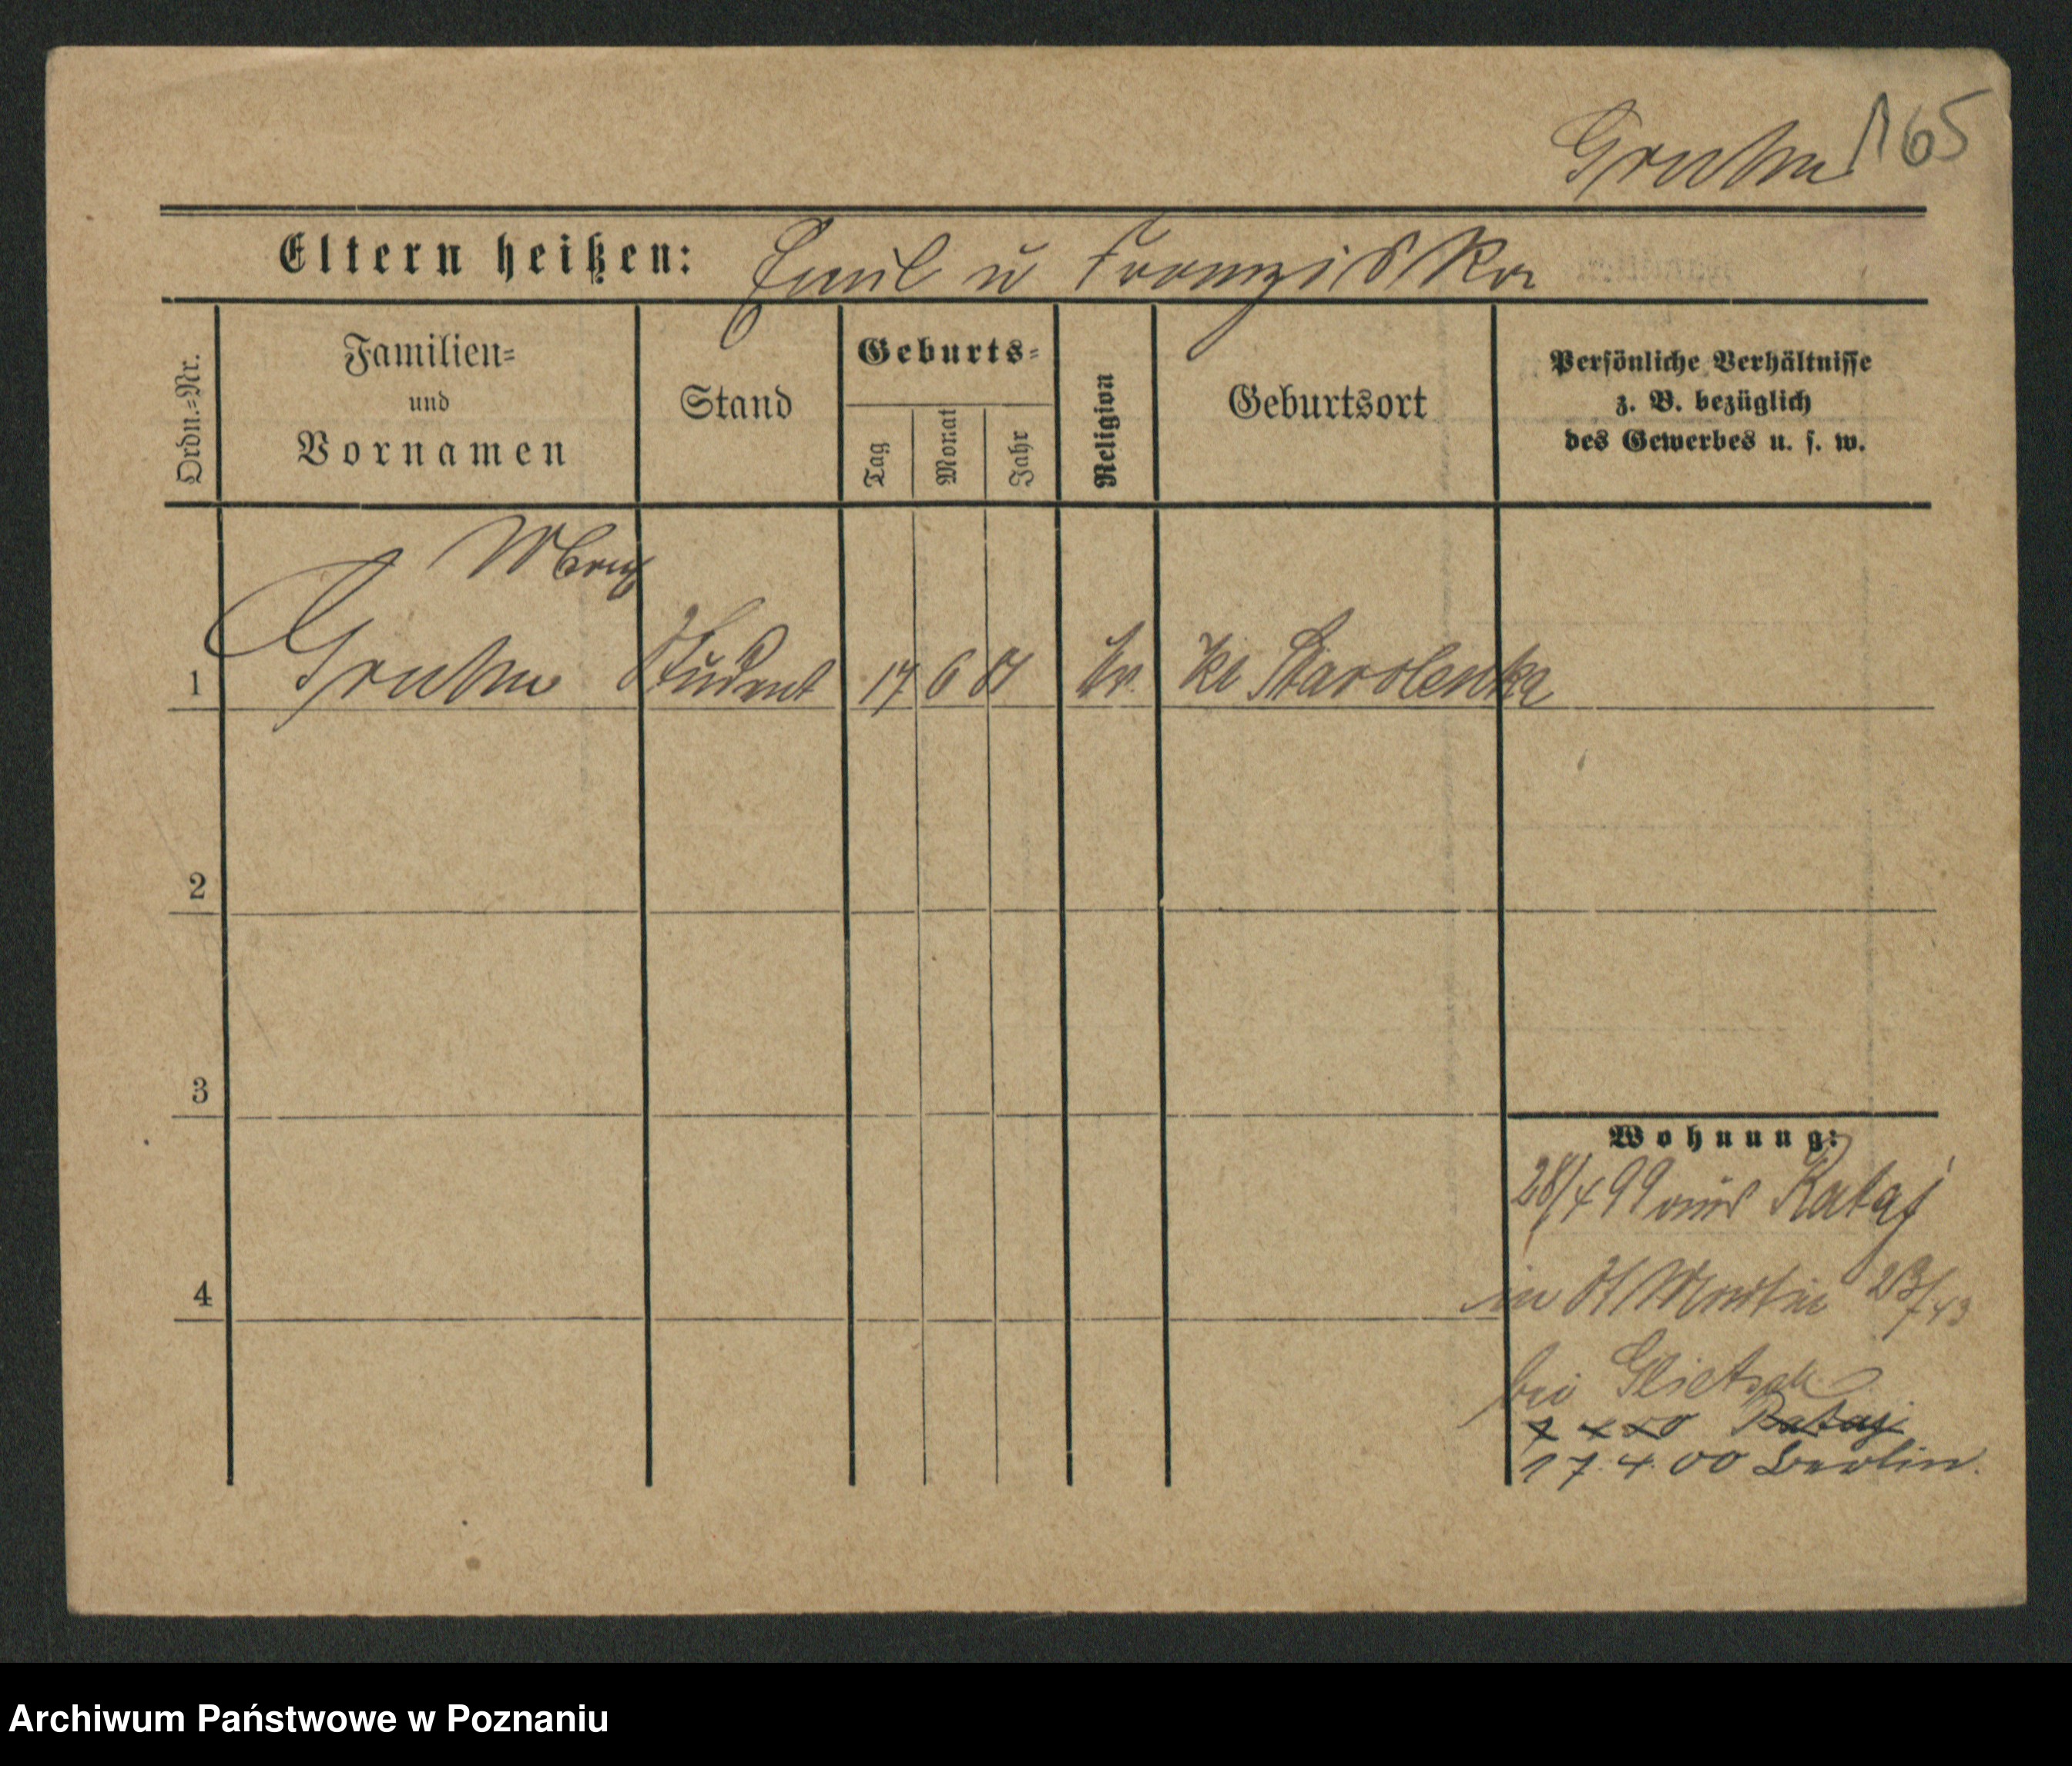 165
Eltern heißen: Emil u Franziska
Ordn.=Nr.
Familien=
und
Vornamen
Stand
Geburts=
Tag
Monat
Jahr
Religion
Geburtsort
Persönliche Verhältnisse
z. B. bezüglich
des Gewerbes u. s. w.
1 Student 17 6 Kl Starolenka
2
3
4
Wohnung:
28/4 99 aus Rataj
in St Martin
bei
Rataj
17. 4. 00 Berlin.
Archiwum Państwowe w Poznaniu